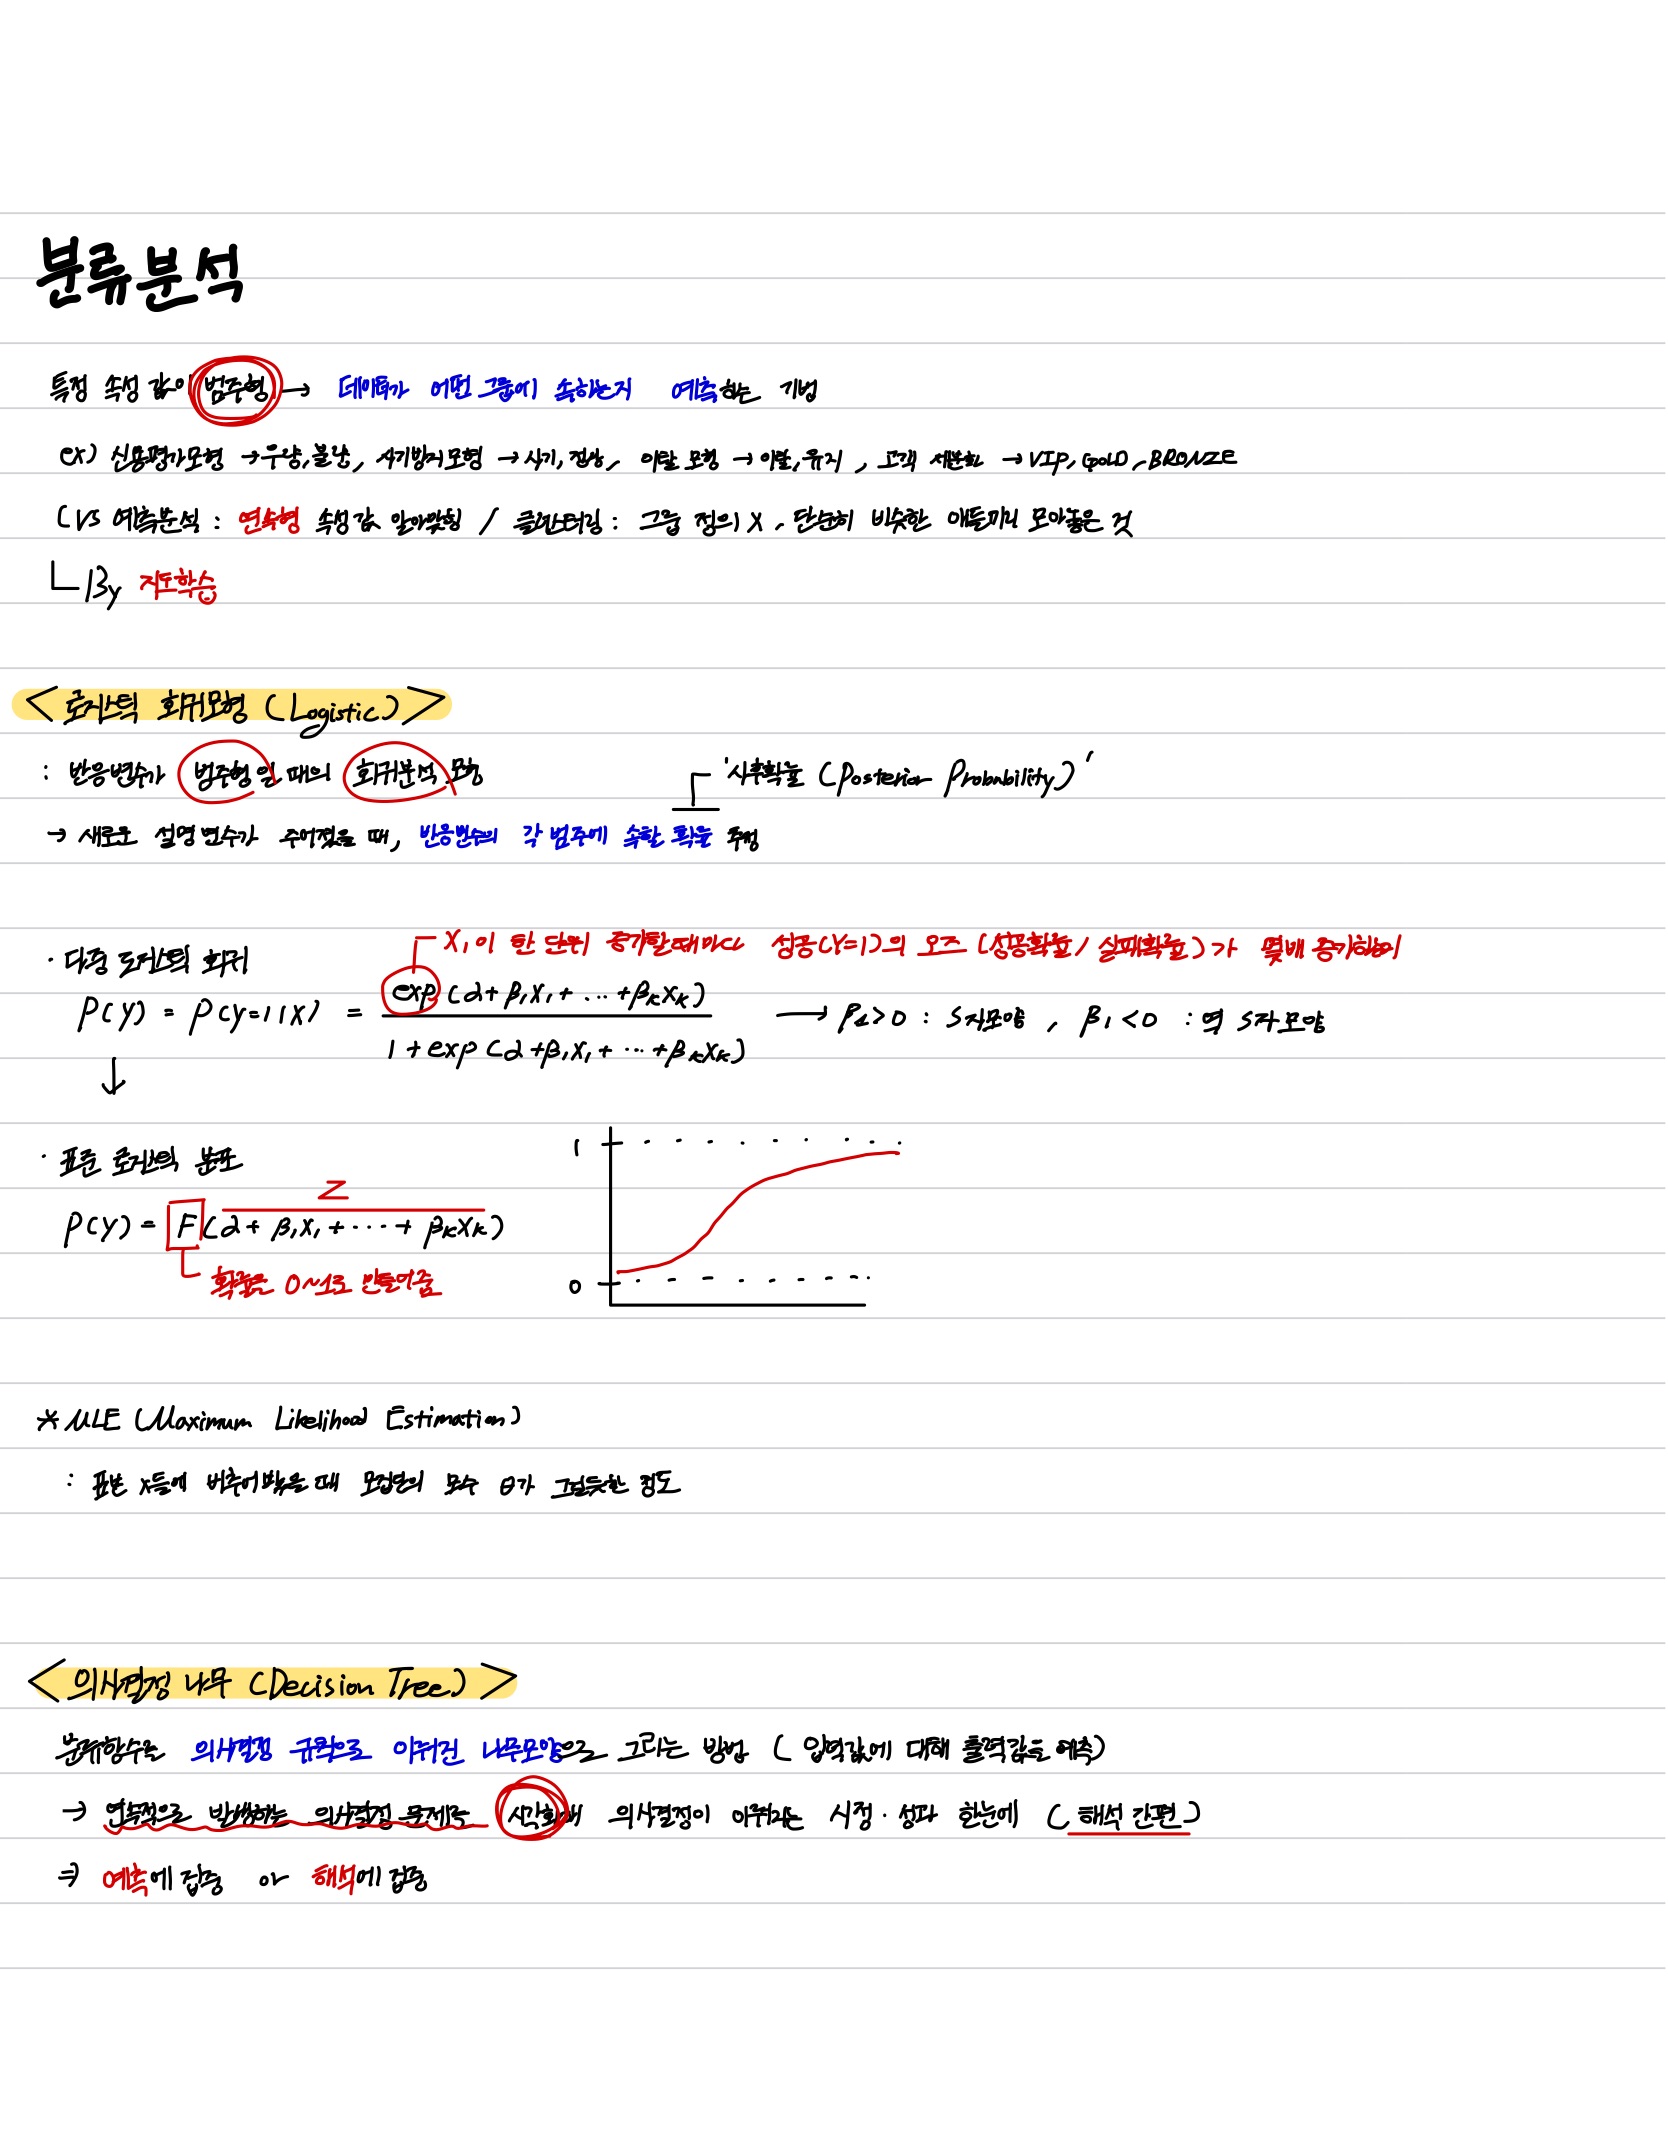 분류분석
특정 속성 값이 범주형 → 데이터가 어떤 그룹에 속하는지 예측하는 기법
ex) 신용평가모형 → 우량, 불량, 사기방지모형 → 사기, 정상, 이탈 모형 → 이탈, 유지, 고객 세분화 → VIP, GOLD, BRONZE
( VS 예측분석 : 연속형 속성값 알아맞힘 / 클러스터링 : 그룹 정의 X, 단순히 비슷한 애들끼리 모아놓은 것
By 지도학습
< 로지스틱 회귀모형 (Logistic) >
: 반응변수가 범주형일 때의 회귀분석 모형
'사후확률 (Posterior Probability)'
→ 새로운 설명변수가 주어졌을 때, 반응변수의 각 범주에 속할 확률 추정
X₁이 한 단위 증가할때마다 성공(Y=1)의 오즈 (성공확률/실패확률)가 몇배 증가하는지
· 다중 로지스틱 회귀
P(Y) = P(Y=1|X) = exp(α+β₁X₁+...+βₖXₖ) / 1+exp(α+β₁X₁+...+βₖXₖ) → β₁>0 : S자모양, β₁<0 : 역 S자모양
↓
· 표준 로지스틱 분포
Z
P(Y) = F(α+β₁X₁+...+βₖXₖ)
확률은 0~1로 만들어줌
1
0
* MLE (Maximum Likelihood Estimation)
: 표본 x들에 비추어봤을 때 모집단의 모수 θ가 그럴듯한 정도
< 의사결정 나무 (Decision Tree) >
분류함수를 의사결정 규칙으로 이뤄진 나무모양으로 그리는 방법 (입력값에 대해 출력값을 예측)
→ 연속적으로 발생하는 의사결정 문제를 시각화해 의사결정이 이뤄지는 시점·성과 한눈에 (해석 간편)
⇒ 예측에 집중 or 해석에 집중